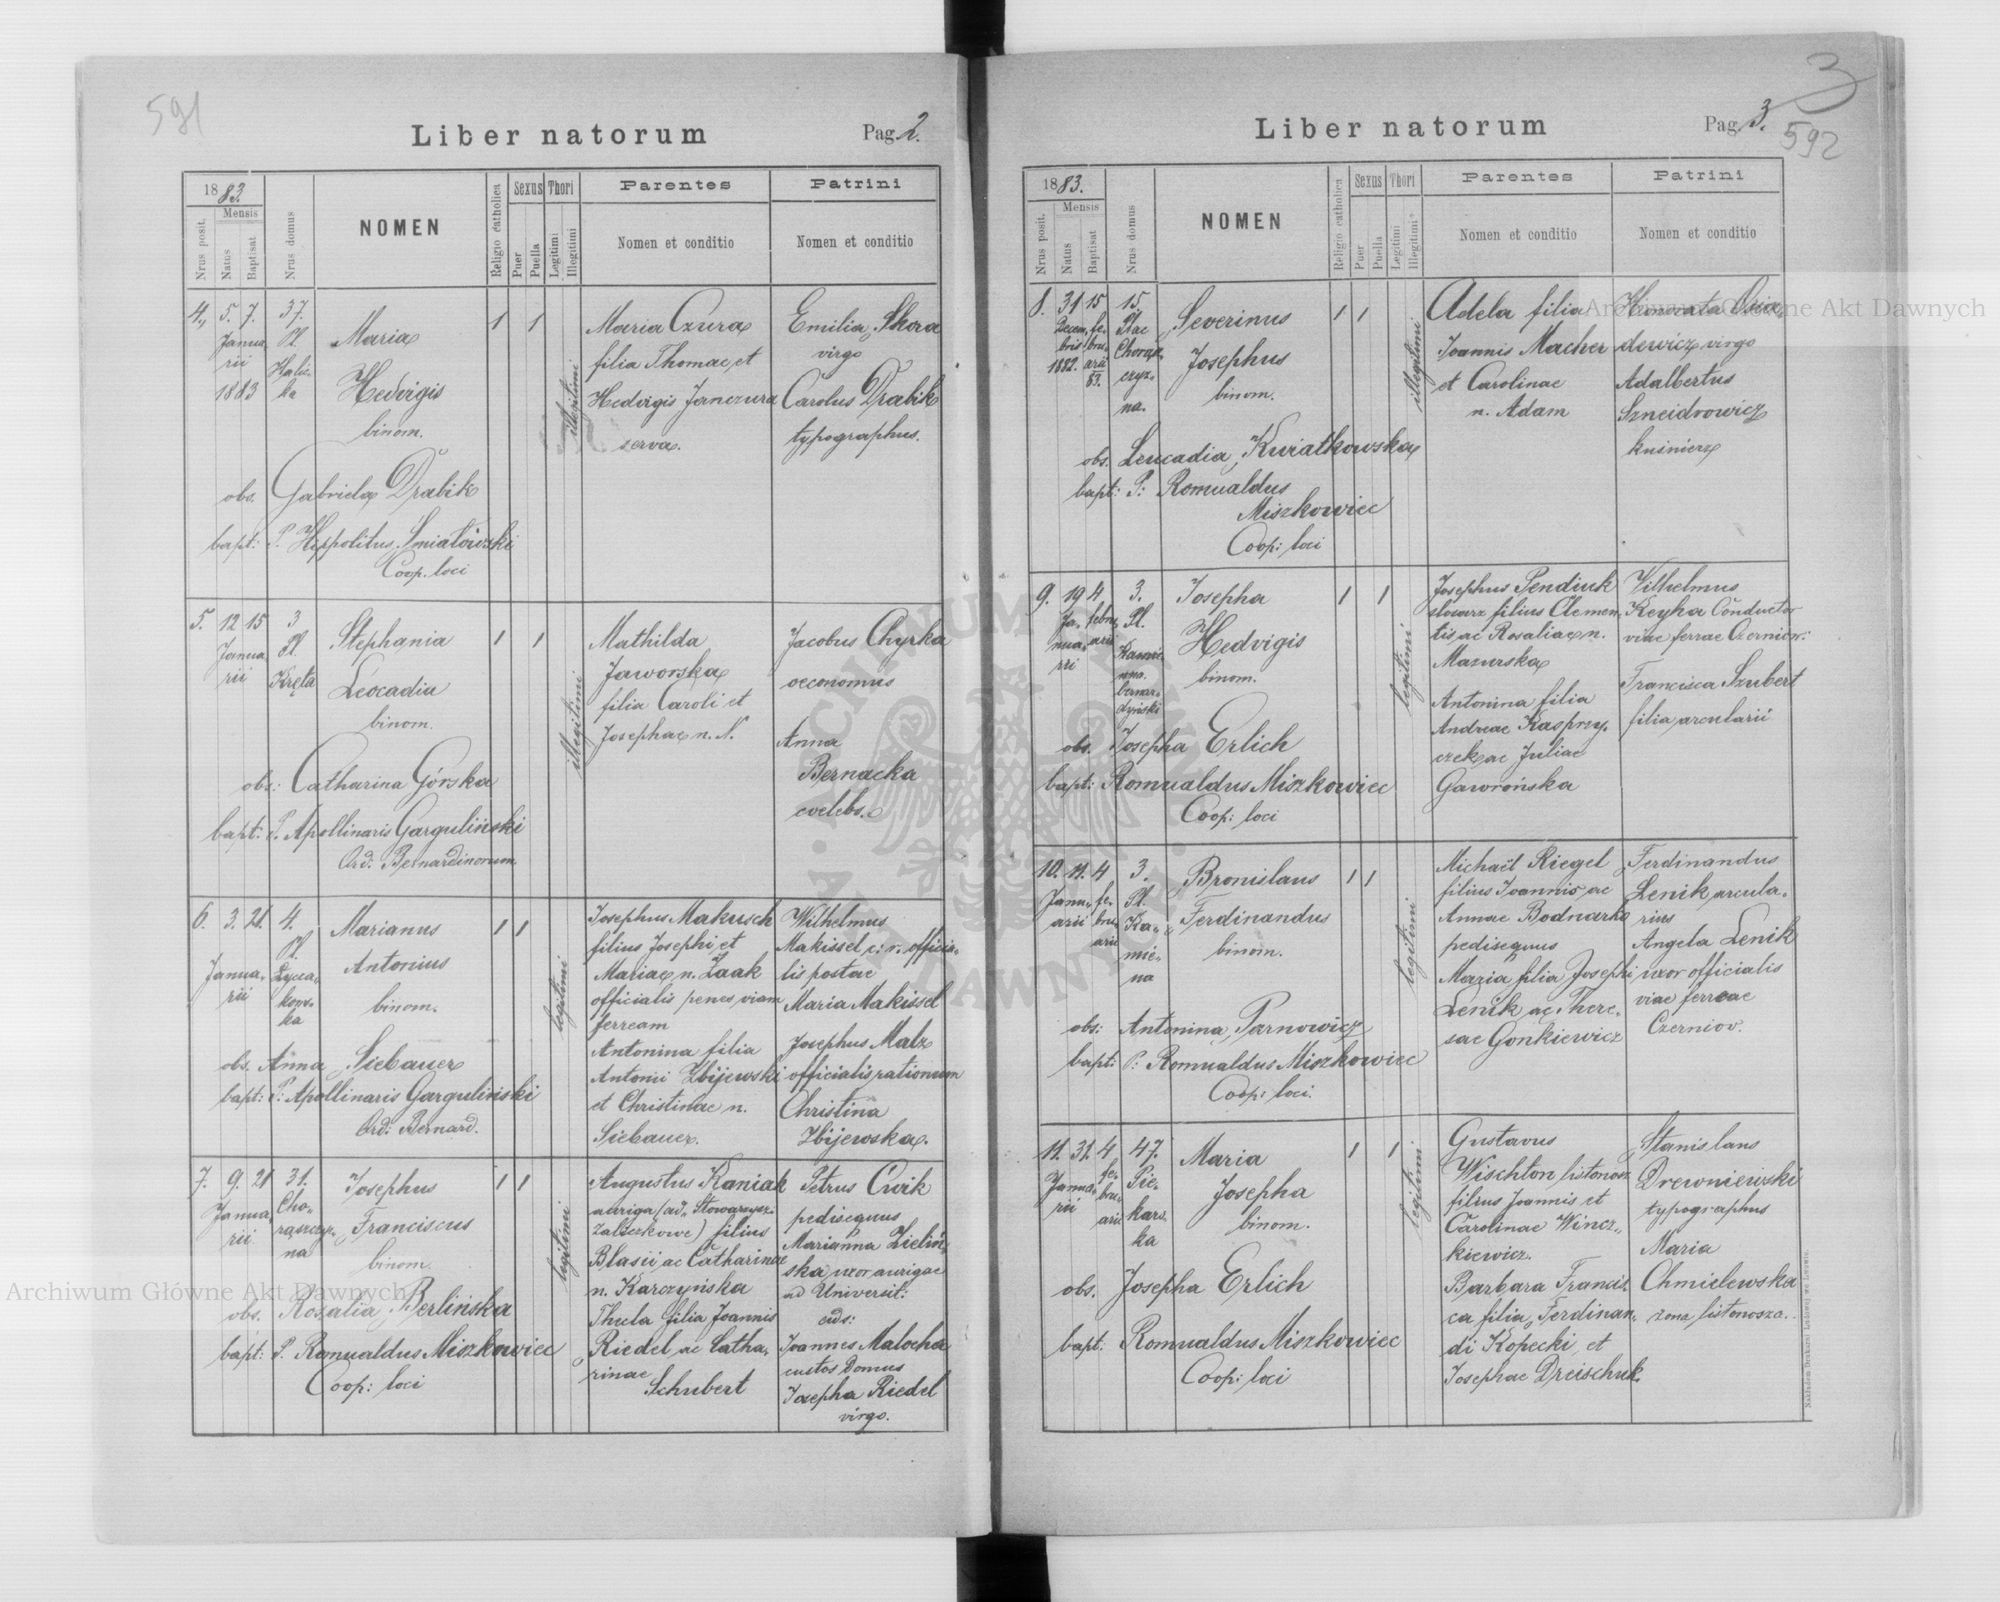 591
Liber natorum
Pag. 2.
1883.
Nrus posit.
Mensis
Natus
Baptisat
Nrus domus
NOMEN
Religio catholica
Sexus
Puer
Puella
Thori
Legitimi
Illegitimi
Parentes
Nomen et conditio
Patrini
Nomen et conditio
4., 5. 7. Januarii 1883
37. Pl. Halicka
Maria
Hedvigis
binom.
1 1
illegitimi
Maria Czura
filia Thomae, et
Hedvigis Janczura
serva.
Emilia Skora
virgo
Carolus Drabik
typographus.
obs. Gabriela Drabik
bapt: P. Hippolitus
Coop. loci
5. 12 15 Januarii
3 Pl. Kręta
Stephania
Leocadia
binom.
1 1
illegitimi
Mathilda
Jaworska
filia Caroli et
Josepha n. N.
Jacobus Chyrka
oeconomus
Anna
Bernacka
coelebs.
obs: Catharina Górska
bapt: P. Apollinaris Garguliński
Ord: Bernardinorum.
6. 3. 21. Januarii
4. Pl. Łyczakowska
Marianus
Antonius
binom.
1 1
legitimi
Josephus Makusch
filius Josephi et
Maria n. Zaak
officialis penes viam
ferream
Antonina filia
Antonii Zbijewski
et Christinae n.
Siebauer.
Wilhelmus
Makissel c: r. officialis postae
Maria Makissel
Josephus Malz
officialis rationum
Christina
Zbijewska.
obs. Anna Siebauer
bapt: P: Apollinaris Garguliński
Ord: Bernard.
7. 9. 21 Januarii
31. Chorąszczyzna
Josephus
Franciscus
binom.
1 1
legitimi
Augustus Kaniak
auriga (ad Stowarzysz.
zaliczkowe) filius
Blasii ac Catharinae
n. Karczyńska
Thecla filia Joannis
Riedel ac Catharinae
Schubert
Petrus Ćwik
pedisequus
Marianna Zielińska uxor aurigae
ad Universit:
eids:
Joannes Malocha
custos Domus
Josepha Riedel
virgo.
obs. Rozalia Berlińska
bapt: P. Romualdus Miszkowiec
Coop: loci
3
592
Liber natorum
Pag. 3.
1883.
Nrus posit.
Mensis
Natus
Baptisat
Nrus domus
NOMEN
Religio catholica
Sexus
Puer
Puella
Thori
Legitimi
Illegitimi
Parentes
Nomen et conditio
Patrini
Nomen et conditio
8. 31 Decembris 1882. 15 februarii 83.
15. Plac
Severinus
Josephus
binom.
1 1
illegitimi
Adela filia
Joannis Macher
et Carolinae
n. Adam
Honorata
dewicz virgo
Adalbertus
Szneidrowicz
kuśnierz
obs. Leucadia Kwiatkowska
bapt: P: Romualdus
Miszkowiec
Coop: loci
9. 19 Januarii 4. februarii
3. Pl.
Josepha
Hedvigis
binom.
1 1
legitimi
Josephus Pendiuk
filius Clementis ac Rosaliae n.
Mazurska
Antonina filia
Andreae Kasprzyczek ac Juliae
Gawrońska
Vilhelmus
Keyha Conductor
viae ferrae Czerniow:
Francisca Szubert
filia arcularii
obs. Josepha Erlich
bapt: Romualdus Miszkowiec
Coop: loci
10. 11. Januarii 4 februarii
3. Pl. Kamiéna
Bronislaus
Ferdinandus
binom.
1 1
legitimi
Michaël Riegel
filius Joannis ac
Annae Bodnarko
pedisequus
Maria filia Josephi
Lenik ac Theresae Gonkiewicz
Ferdinandus
Lenik arcularius
Angela Lenik
uxor officialis
viae ferreae
Czerniow.
obs: Antonina Parnowicz
bapt: P: Romualdus Miszkowiec
Coop: loci.
11. 31. Januarii 4 februarii
47. Piekarska
Maria
Josepha
binom.
1 1
legitimi
Gustavus
Wischton listonosz
filius Joannis et
Carolinae Winczkiewicz.
Barbara Francisca filia Ferdinandi Kopecki et
Josephae Dreischuk.
Stanislaus
Drewniewski
typographus
Maria
Chmielewska
żona listonosza.
obs. Josepha Erlich
bapt. Romualdus Miszkowiec
Coop: loci
Archiwum Główne Akt Dawnych
Archiwum Główne Akt Dawnych